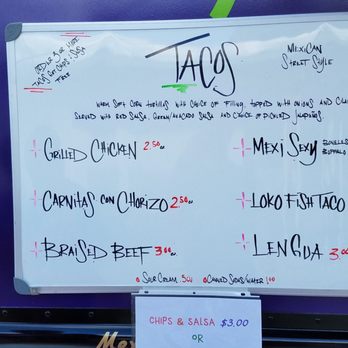 ORDER 4 OR MORE
TACOS GET CHIPS & SALSA
FREE
TACOS
MEXICAN
STREET STYLE
WARM SOFT CORN TORTILLAS WITH CHOICE OF FILLING, TOPPED WITH ONIONS AND
SERVED WITH RED SALSA, GREEN/AVACADO SALSA AND CHOICE OF PICKLED JALAPEÑOS.
GRILLED CHICKEN 2.50
CARNITAS CON CHORIZO 2.50
BRAISED BEEF 3.00
MEXI SEXY
LOKO FISH TACO
LENGUA 3.
SOUR CREAM .50
CANNED SODAS/WATER 1.00
CHIPS & SALSA $3.00
OR